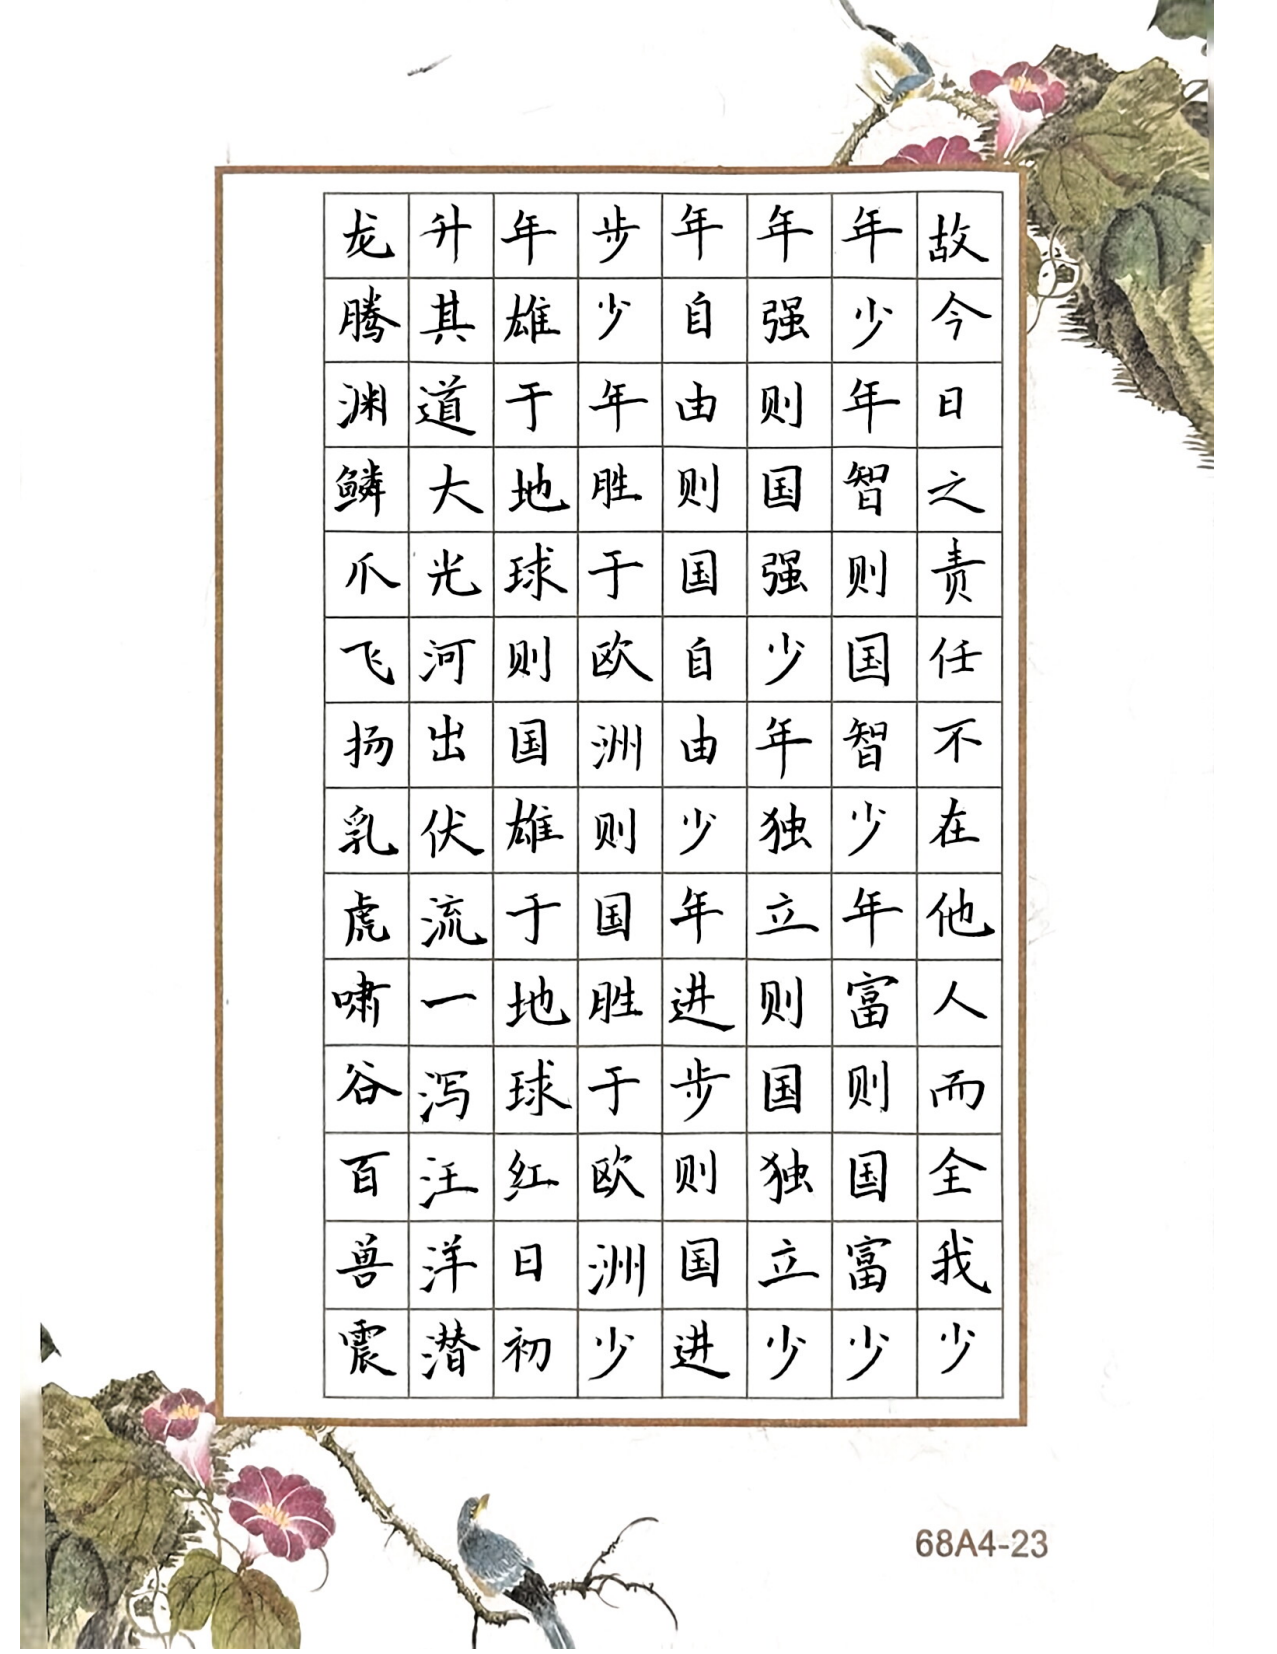 故今日之责任不在他人而全我少
年少年智则国智少年富则国富少
年强则国强少年独立则国独立少
年自由则国自由少年进步则国进
步少年胜于欧洲则国胜于欧洲少
年雄于地球则国雄于地球红日初
升其道大光河出伏流一泻汪洋潜
龙腾渊鳞爪飞扬乳虎啸谷百兽震
68A4-23